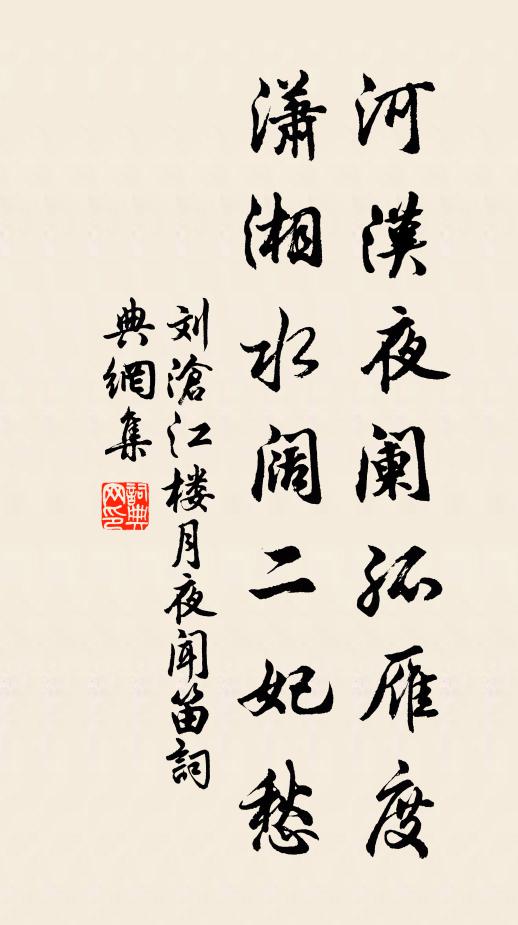 河漢夜阑孤雁度
瀟湘水阔二妃愁
刘滄江楼月夜闻笛詞
典網集
詞典
网印